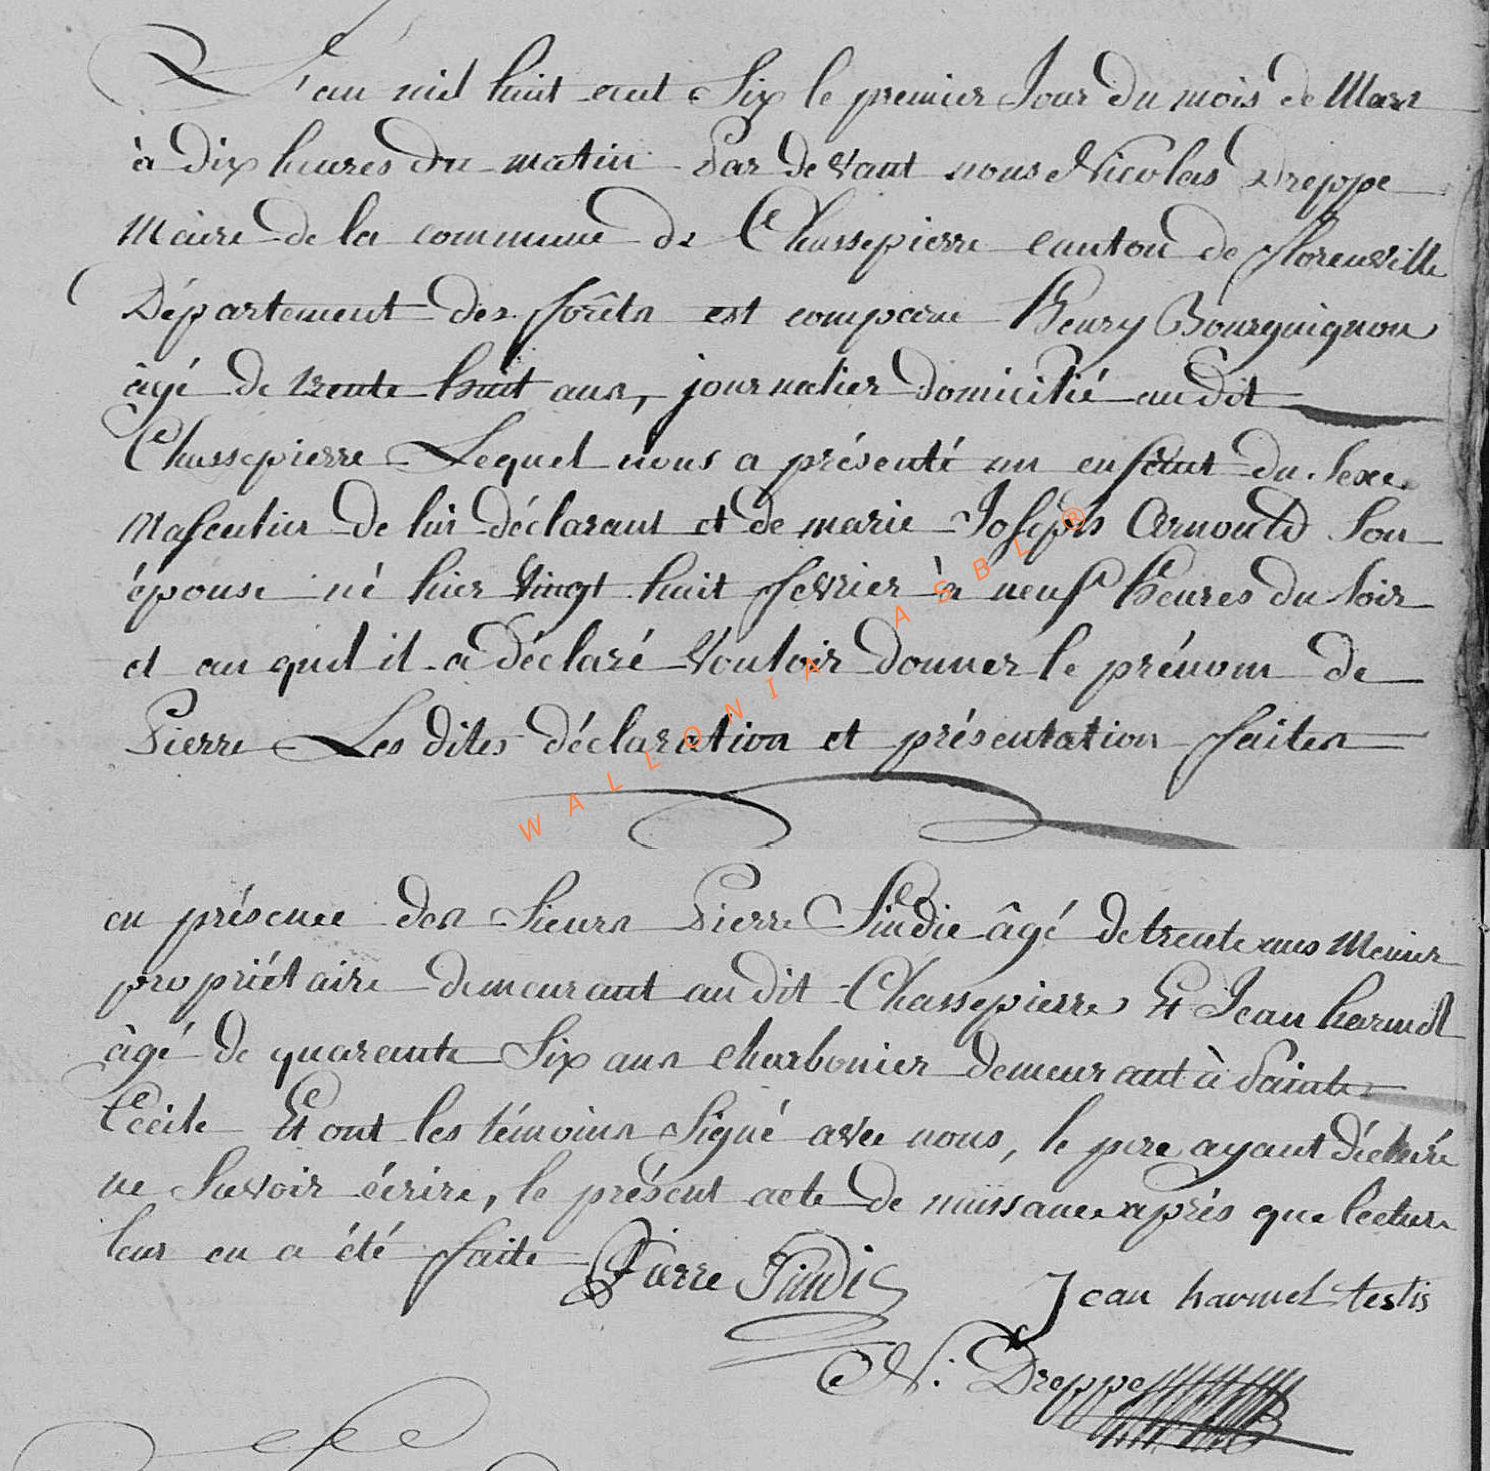 L'an mil huit cent Six le premier Jour du mois de Mars
à dix heures du matin Par devant nous Nicolas Dreppe
Maire de la commune de Chassepierre canton de florenville
Département des forêts est comparu Henry Bourguignon
âgé de trente huit ans, journalier domicilié audit
Chassepierre Lequel nous a présenté un enfant du Sexe
Masculin de lui déclarant et de marie Joseph Arnould Son
épouse né hier Vingt huit fevrier à neuf heures du Soir
et au quel il a déclaré Vouloir donner le prénom de
Pierre Les dites déclaration et présentation faites
WALLONIA ASBL ®
en présence des Sieurs Pierre Sindic âgé de trente ans Menier
propriétaire demeurant audit Chassepierre Et Jean harmel
âgé de quarante Six ans charbonier demeurant à Sainte
Cécile Et ont les témoins Signé avec nous, le pere ayant déclaré
ne Savoir écrire, le présent acte de naissance après que lecture
leur en a été faite Pierre Sindic
Jean harmel testis
N: Dreppe